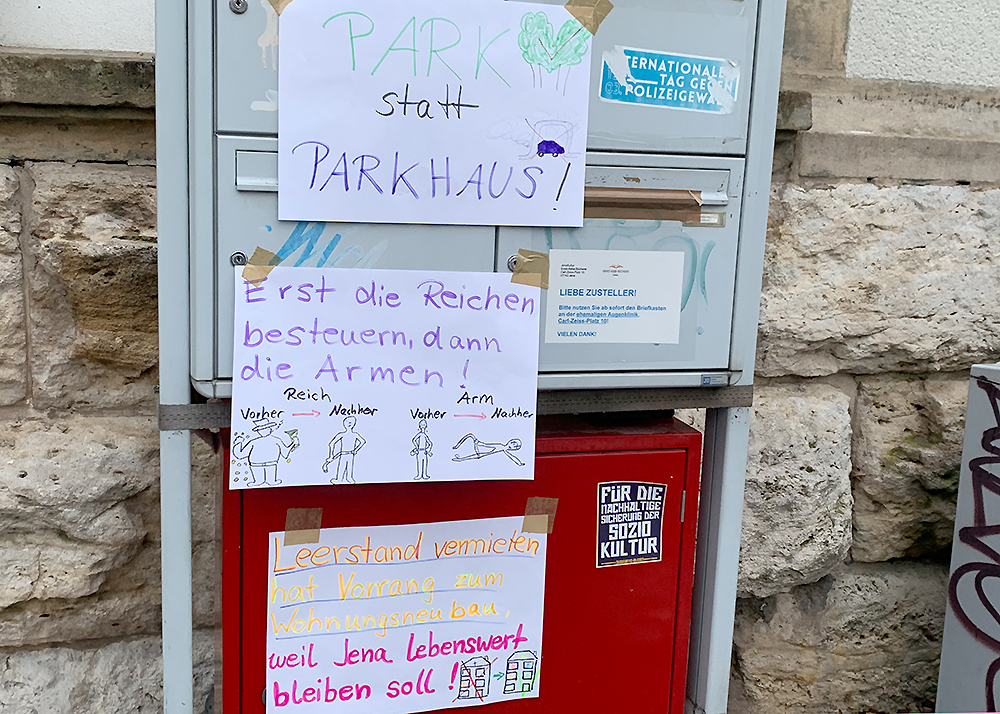 PARK
statt
PARKHAUS!
TERNATIONALE
TAG GEGEN
POLIZEIGEWA
Erst die Reichen
besteuern, dann
die Armen!
Reich
Vorher → Nachher
Arm
Vorher → Nachher
LIEBE ZUSTELLER!
Bitte nutzen Sie ab sofort den Briefkasten
an der ehemaligen Augenklinik,
Carl-Zeiss-Platz 10!
VIELEN DANK!
FÜR DIE
NACHHALTIGE
SICHERUNG DER
SOZIO
KULTUR
Leerstand vermieten
hat Vorrang zum
Wohnungsneubau,
weil Jena lebenswert
bleiben soll!